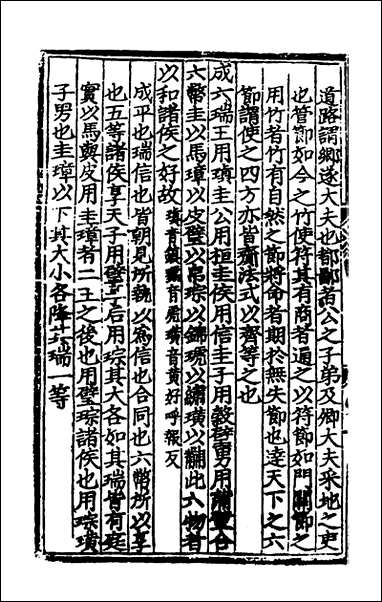 道路謂鄉遂大夫也都鄙者公之子弟及卿大夫采地之吏
也管節如今之竹使符其有商者通之以符節如門關節之
用竹者竹有自然之節將命者期於無失節也達天下之六
節謂使之四方亦皆齎法式以齊等之也
成六瑞王用瑱圭公用桓圭侯用信圭子用穀璧男用蒲璧合
六幣圭以馬璋以皮璧以帛琮以錦琥以繡璜以黼此六物者
以和諸侯之好故瑱音鎮琥音虎璜音黃好呼報反
成平也瑞信也皆朝見所執以為信也合同也六幣所以享
也五等諸侯享天子用璧享后用琮其大各如其瑞皆有庭
實以馬與皮用圭璋者二王之後也用璧琮諸侯也用琮璜
子男也圭璋以下其大小各降其瑞一等